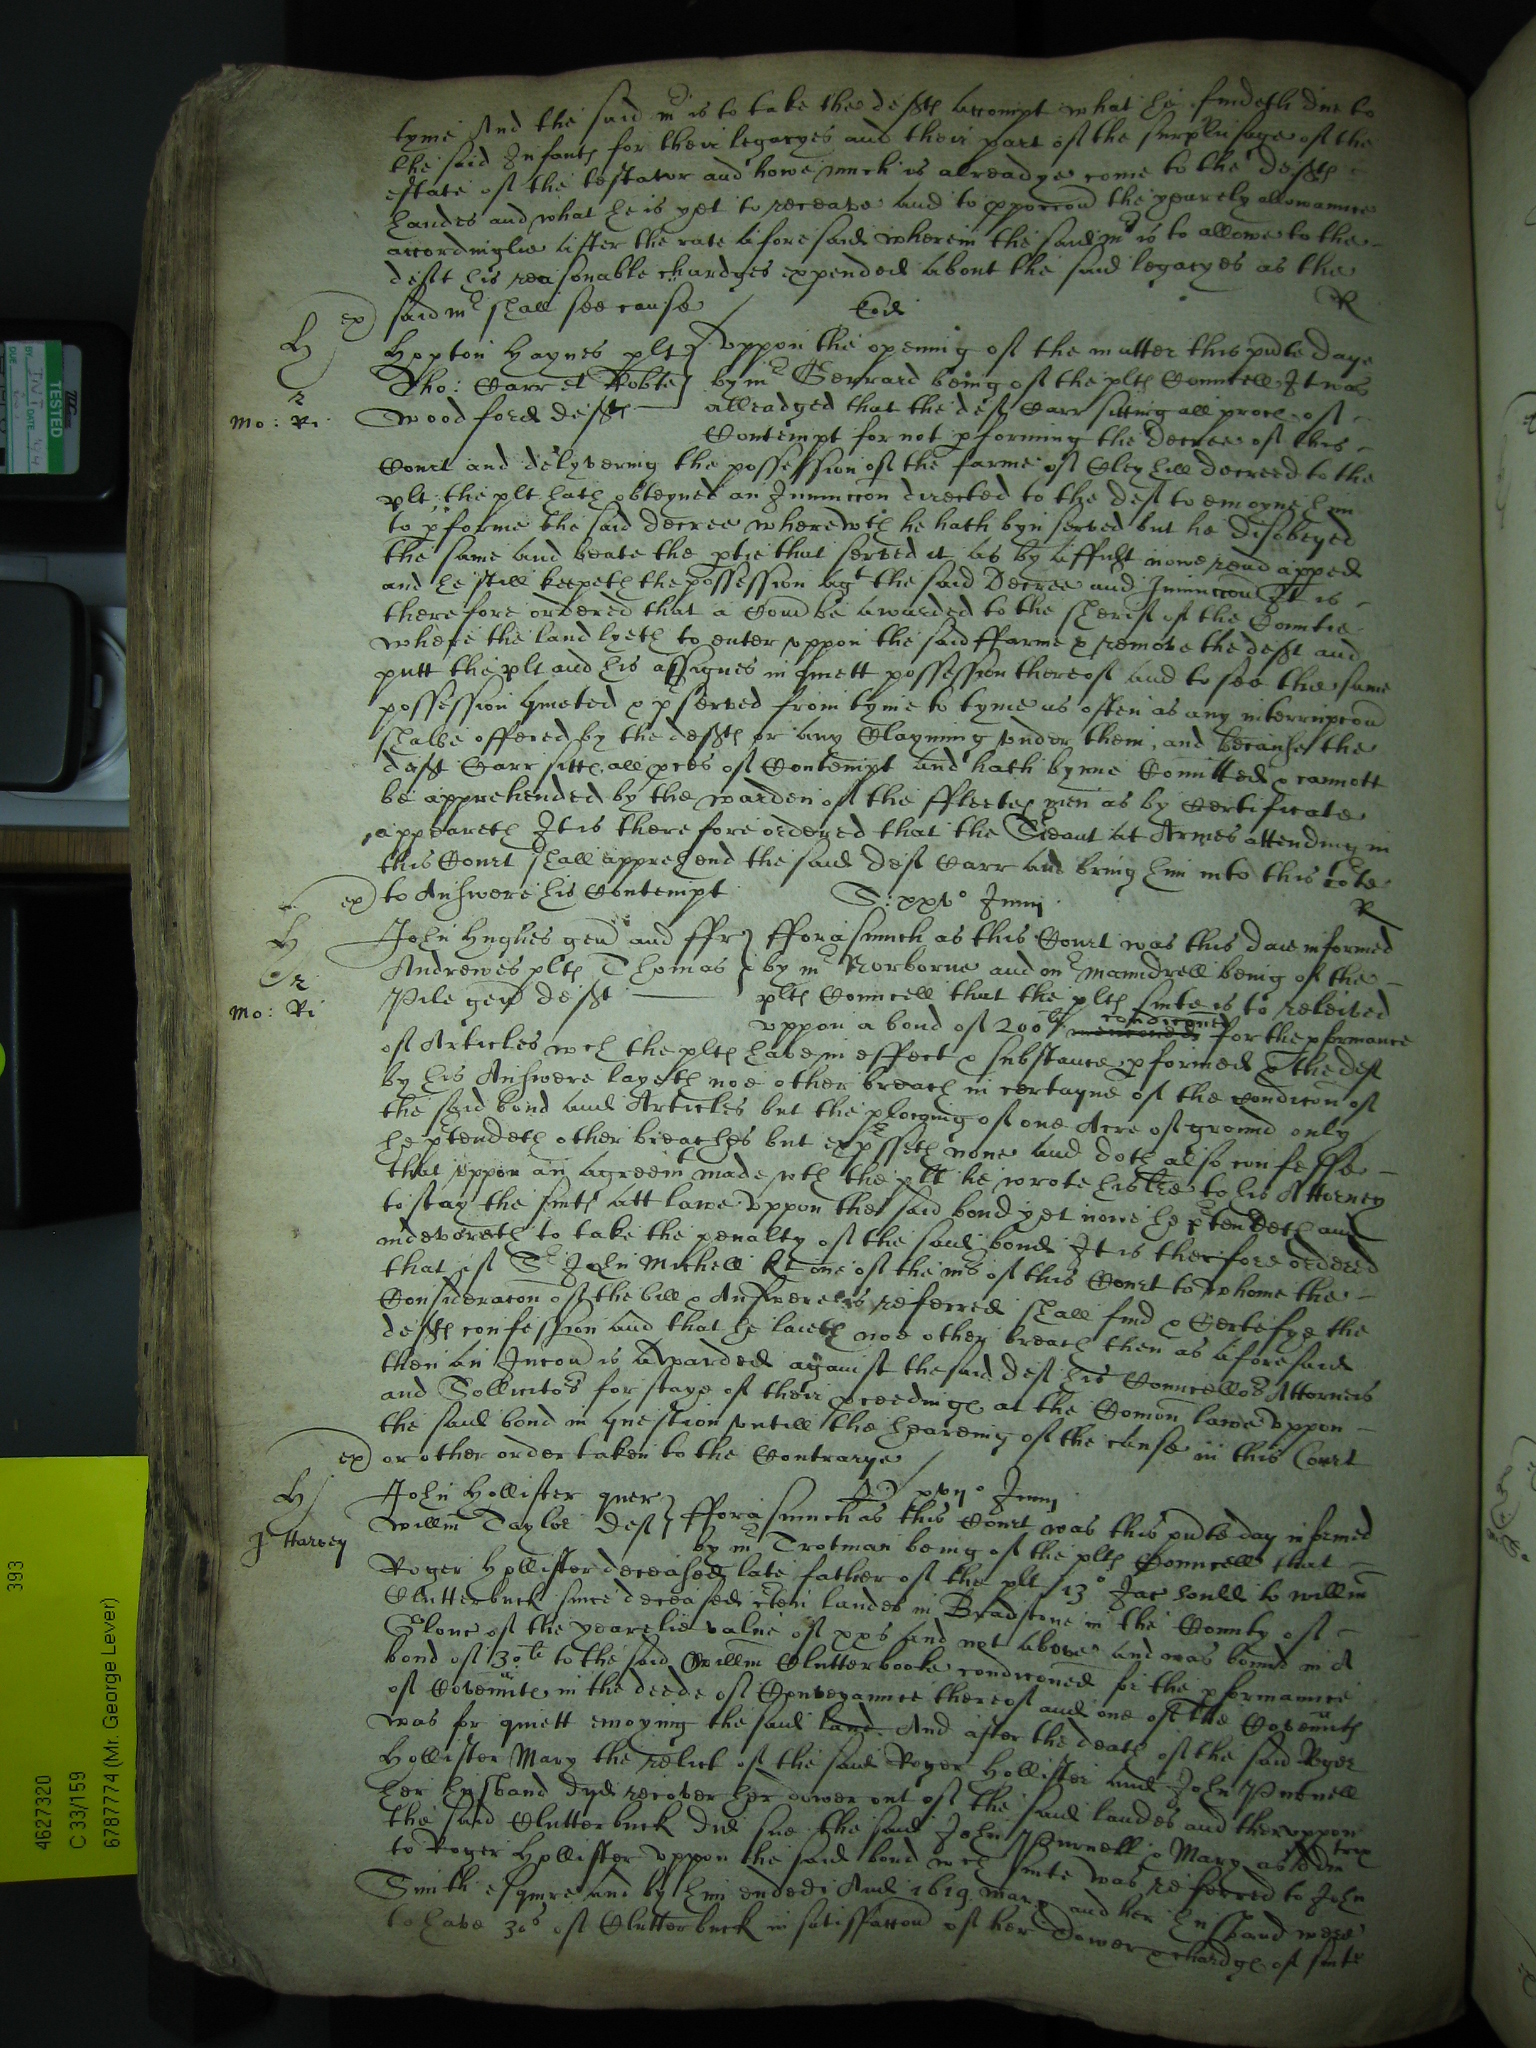 tyme And the said mr is to take the defts accompt what he findeth due to
the said Infants for their legacyes and their part of the surplusage of the
estate of the testator and howe much is alreadye come to the defts
handes and what he is yet to receave and to pporcon the yearely allowannce
accordinglie after the rate aforesaid wherein the said mr is to allowe to the
deft his reasonable chardges expended about the said legacyes as the
said mr shall see cause
ex
H
Eod
R
Hopton Haynes plt Uppon the opening of the matter this pnte daye
Tho: Carr et Robte by mr Gerrard being of the plts Councell It was
Mo: Ri
Woodford defts alleadged that the deft Carr sitting all proces of
Contempt for not pforming the decree of this
Court and delyvering the possession of the farme of Cley hill decreed to the
plt, the plt hath obteyned an Iniunccon directed to the deft to enioyne him
to pforme the said decree wherewth he hath byn served but he disobeyed
the same and beate the ptie that served it as by affidt nowe read apped
and he still keepeth the possession agt the said Decree and Iniunccon It is
therefore ordered that a Comn be awarded to the sherif of the Countie
where the land lyeth to enter uppon the said ffarme & remove the deft and
putt the plt and his assignes in quiett possession thereof and to see the same
possession quieted & pserved from tyme to tyme as often as any interrupcon
shalbe offered by the defts or any Clayming under them, and because the
deft Carr sitts all pces of Contempt and hath byne Comitted & cannott
be apprehended by the warden of the ffleetes men as by Certificate
appeareth It is therefore ordered that the Sieant at Armes attending in
this Court shall apprehend the said deft Carr and bring him into this Cote
ex
to Answere his Contempt
S: xxvo Junij
R
H
John Hughes gen and ffr fforasmuch as this Court was this daie informed
Andrewes plts Thomas by mr Norborne and mr maundrell being of the
Mo: Ri
Pile gen deft plts Councell that the plts suite is to releived
uppon a bond of 200li mencioned condiconed for the pformance
of Articles wch the plts have in effect & substance pformed & the deft
by his Answere layeth noe other breach in certayne of the condicon of
the said bond and Articles but the plowing of one Acre of ground only
he ptendeth other breaches but expsseth none and doth also confesse
that uppon an agreemt made wth the plt he wrote his lre to his Attorney
to stay the suits att lawe uppon the said bond yet nowe he ptendeth and
indevoreth to take the penalty of the said bond It is therefore ordered
that if Sr John Michell kt one of the mrs of this Court to whome the
Consideracon of the bill & Answere is referred shall find & Certefye the
defts confession and that he laieth noe other breach then as aforesaid
then an Iniccon is awarded against the said deft his Councellors Attorneis
and Sollicitors for staye of their pceedings at the Comon lawe uppon
the said bond in question untill the heareing of the cause in this Court
ex
or other order taken to the Contrarye
H
xxvijo Junij
John Hollister quer fforasmuch as this Court was this pnte day informed
J Harvey
Willm Tayler deft by mr Trotman being of the plts Councell that
Roger Hollister deceased late father of the plt 13o Jac sould to willm
Clutterbuck since deceased cten landes in Bradstone in the County of
Glouc of the yearelie value of xxs and not above and was bound in a
bond of 30li to the said Willm Clutterbooke condiconed for the pformannce
of Covennts in the deede of Conveyannce thereof and one of the Covennts
was for quiett enioying the said land. And after the death of the said Roger
Hollister Mary the relict of the said Roger Hollister and John Purnell
her husband dyd recover her dower out of the said landes and theruppon
the said Clutterbuck did sue the said John Purnell & Mary as Adm trix
to Roger Hollister uppon the said bond wch suite was referred to John
Smith esquire and by him ended And 1619 mary and her husband were
to have 30s of Clutterbuck in satisfaccon of her Dower & chardgs of suite
TESTED
DATE
DUE
393
4627320
C 33/159
6787774 (Mr. George Lever)